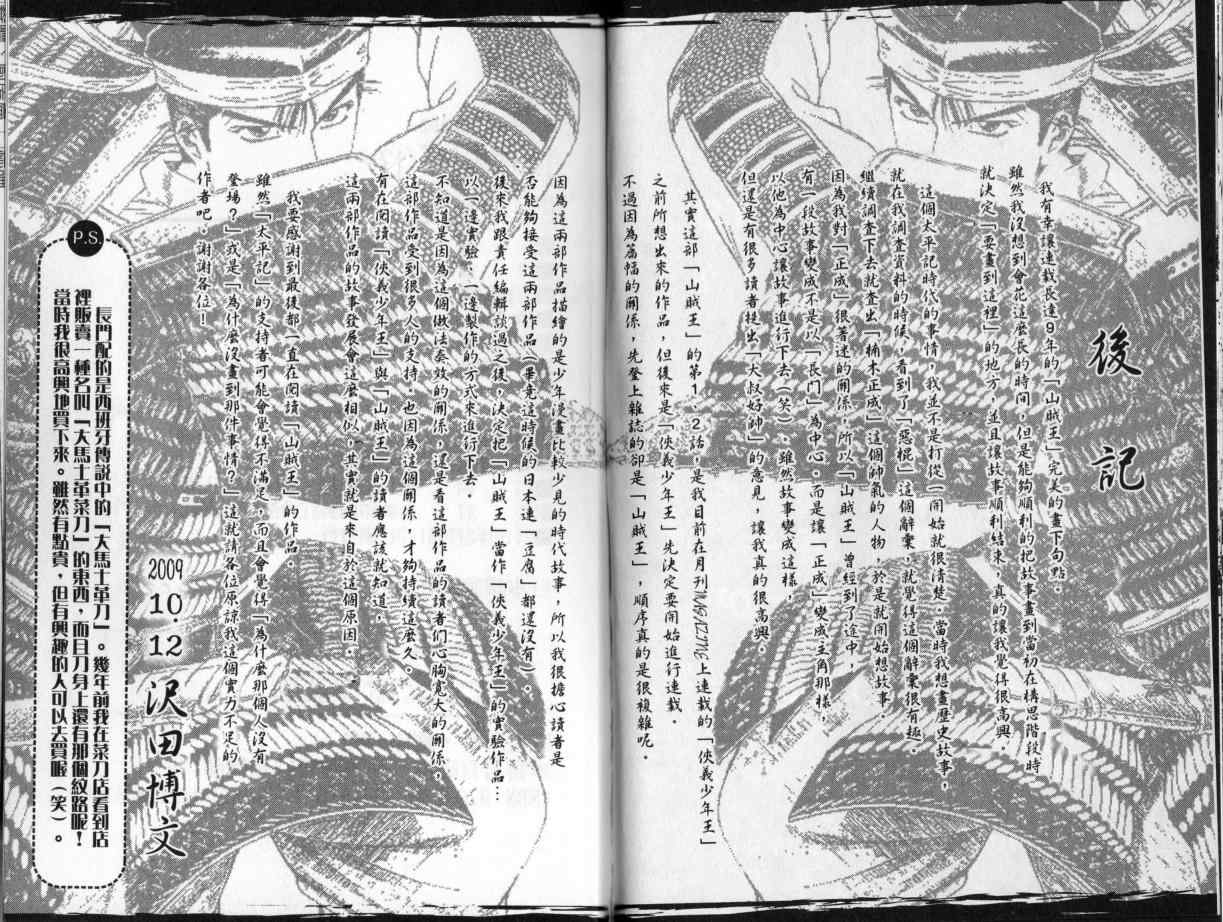 後記
我有幸讓連載長達9年的「山賊王」完美的畫下句點。
雖然我沒想到會花這麼長的時間，但是能夠順利的把故事畫到當初在構思階段時
就決定「要畫到這裡」的地方，並且讓故事順利結束，真的讓我覺得很高興。
這個太平記時代的事情，我並不是打從一開始就很清楚。當時我想畫歷史故事，
就在我調查資料的時候，看到了「惡棍」這個辭彙，就覺得這個辭彙很有趣、
繼續調查下去就查出「楠木正成」這個帥氣的人物，於是就開始想故事。
因為我對「正成」很著迷的關係，所以「山賊王」曾經到了途中，
有一段故事變成不是以「長門」為中心。而是讓「正成」變成主角那樣，
以他為中心讓故事進行下去（笑）。雖然故事變成這樣，
但還是有很多讀者提出「大叔好帥」的意見，讓我真的很高興。
其實這部「山賊王」的第1、2話，是我目前在月刊MAGAZINE上連載的「俠義少年王」
之前所想出來的作品，但後來是「俠義少年王」先決定要開始進行連載。
不過因為篇幅的關係，先登上雜誌的卻是「山賊王」，順序真的是很複雜呢。
因為這兩部作品描繪的是少年漫畫比較少見的時代故事，所以我很擔心讀者是
否能夠接受這兩部作品（畢竟這時候的日本連「豆腐」都還沒有）。
後來我跟責任編輯談過之後，決定把「山賊王」當作「俠義少年王」的實驗作品…
以一邊實驗、一邊製作的方式來進行下去。
不知道是因為這個做法奏效的關係，還是看這部作品的讀者們心胸寬大的關係，
這部作品受到很多人的支持，也因為這個關係，才夠持續這麼久。
有在閱讀「俠義少年王」與「山賊王」的讀者應該就知道，
這兩部作品的故事發展會這麼相似，其實就是來自於這個原因。
我要感謝到最後都一直在閱讀「山賊王」的作品。
雖然「太平記」的支持者可能會覺得不滿足，而且會覺得「為什麼那個人沒有
登場？」或是「為什麼沒畫到那件事情？」這就請各位原諒我這個實力不足的
作者吧。謝謝各位！
2009
10.12
沢田博文
P.S.
長門配的是西班牙傳說中的「大馬士革刀」。幾年前我在菜刀店看到店
裡販賣一種名叫「大馬士革菜刀」的東西，而且刀身上還有那個紋路呢！
當時我很高興地買下來。雖然有點貴，但有興趣的人可以去買喔（笑）。